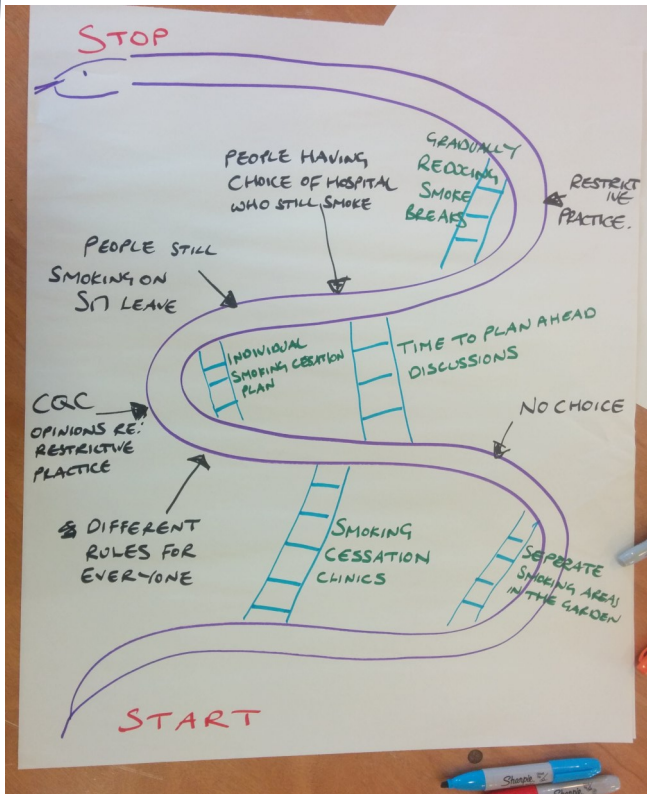 STOP
GRADUALLY
REDUCING
SMOKE
BREAKS
PEOPLE HAVING
CHOICE OF HOSPITAL
WHO STILL SMOKE
RESTRICT
IVE
PRACTICE.
PEOPLE STILL
SMOKING ON
LEAVE
INDIVIDUAL
SMOKING CESATION
PLAN
TIME TO PLAN AHEAD
DISCUSSIONS
CQC
OPINIONS RE:
RESTRICTIVE
PRACTICE
NO CHOICE
DIFFERENT
RULES FOR
EVERYONE
SMOKING
CESSATION
CLINICS
SEPERATE
SMOKING AREAS
IN THE GARDEN
START
Sharpie
Sharpie